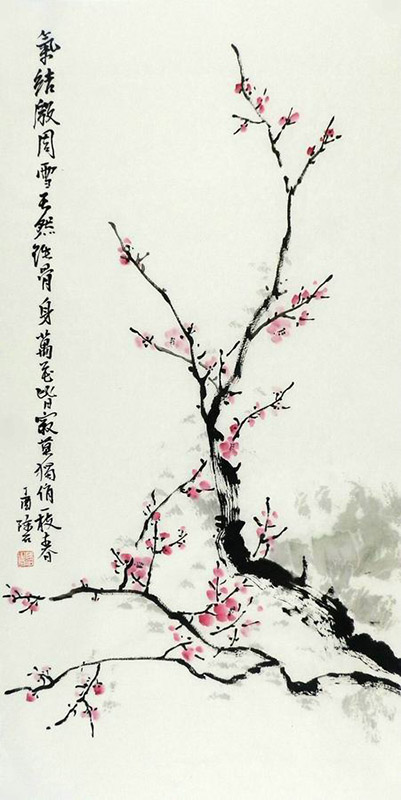 氣結殷周雪天然鐵骨身萬花皆寂莫獨俏一枝春
丁酉